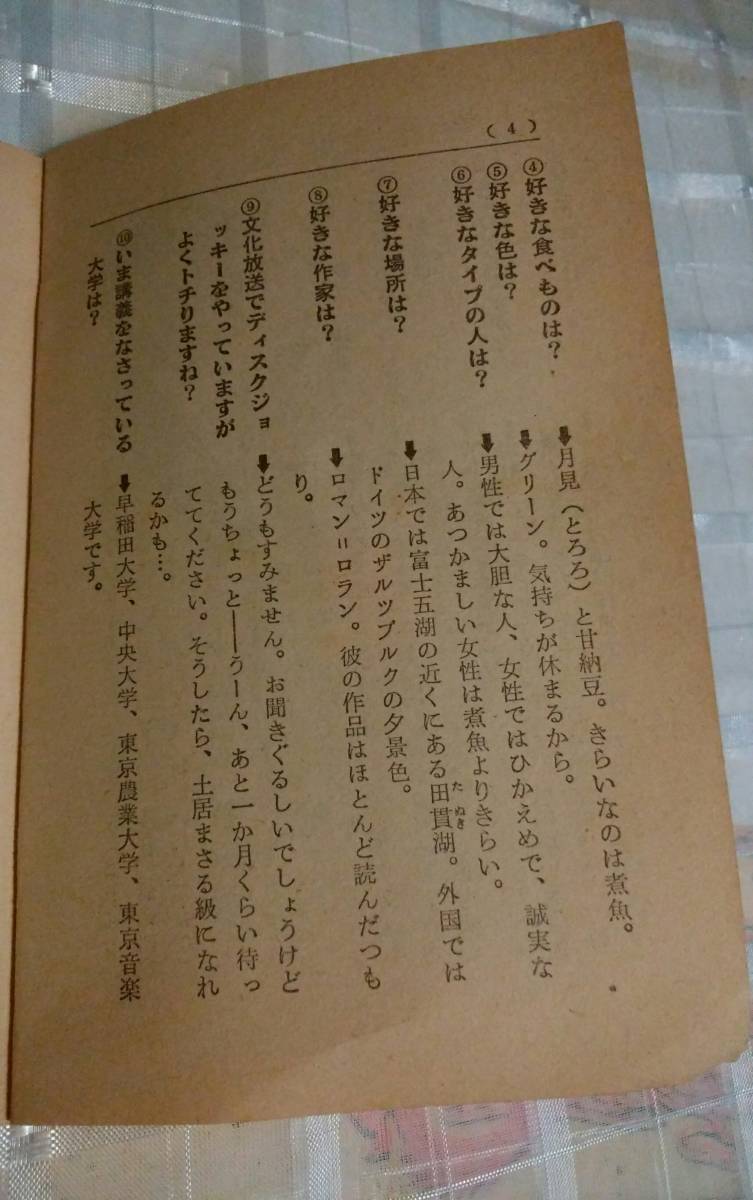 (4)
④好きな食べものは?
⑤好きな色は?
⑥好きなタイプの人は?
⑦好きな場所は?
⑧好きな作家は?
⑨文化放送でディスクジョ
ッキーをやっていますが
よくトチりますね?
⑩いま講義をなさっている
大学は?
➡月見(とろろ)と甘納豆。きらいなのは煮魚。
➡グリーン。気持ちが休まるから。
➡男性では大胆な人、女性ではひかえめで、誠実な
人。あつかましい女性は煮魚よりきらい。
➡日本では富士五湖の近くにある田貫湖。外国では
た ぬき
ドイツのザルツブルクの夕景色。
➡ロマン=ロラン。彼の作品はほとんど読んだつも
り。
➡どうもすみません。お聞きぐるしいでしょうけど
もうちょっと――うーん、あと一か月くらい待っ
ててください。そうしたら、土居まさる級になれ
るかも…。
➡早稲田大学、中央大学、東京農業大学、東京音楽
大学です。